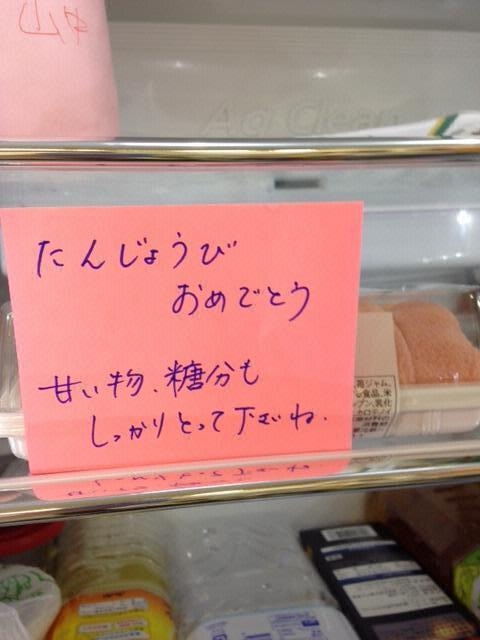 山中
Ag Clean
たんじょうび
おめでとう
甘い物、糖分も
しっかりとって下さいね.
苺ジャム、
食品、米
プン、乳化
カロテノイ
原材料の